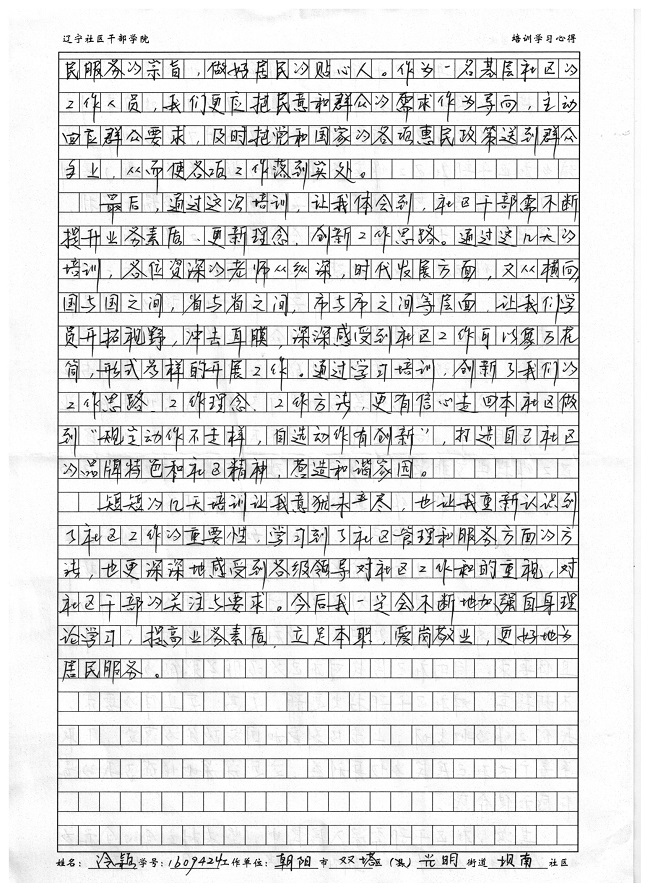 辽宁社区干部学院 培训学习心得
民服务的宗旨，做好居民的贴心人。作为一名基层社区的
工作人员，我们更应把民意和群众的需求作为导向，主动
回应群众要求，及时把党和国家的各项惠民政策送到群众
手上，从而使各项工作落到实处。
最后，通过这次培训，让我体会到，社区干部需不断
提升业务素质、更新理念、创新工作思路。通过这几天的
培训，各位资深的老师从纵深，时代发展方面，又从横向
国与国之间，省与省之间，市与市之间等层面，让我们学
员开拓视野，冲击耳膜，深深感受到社区工作可以寓万在
简，形式多样的开展工作。通过学习培训，创新了我们的
工作思路、工作理念、工作方法，更有信心走回本社区做
到“规定动作不走样，自选动作有创新”，打造自己社区
的品牌特色和社区精神，营造和谐家园。
短短的几天培训让我意犹未尽，也让我重新认识到
了社区工作的重要性，学习到了社区管理和服务方面的方
法，也更深深地感受到各级领导对社区工作和的重视，对
社区干部的关注与要求。今后我一定会不断地加强自身理
论学习，提高业务素质，立足本职，爱岗敬业，更好地为
居民服务。
姓名：冷颖 学号：1609424 工作单位：朝阳 市 双塔 区（县） 光明 街道 坝南 社区